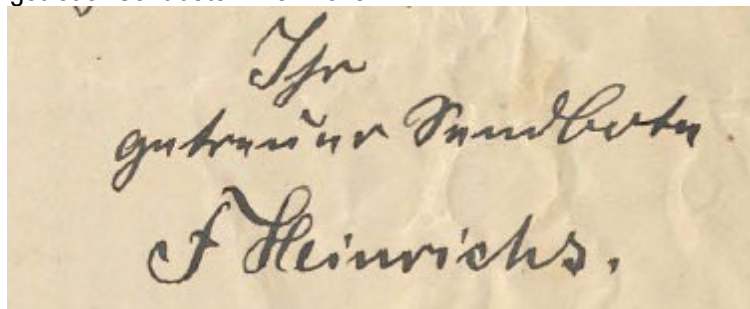 Ihr
getreuer Sendbote
F Heinrichs.